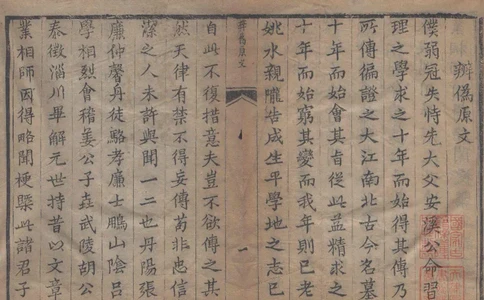 辨偽原文
僕弱冠失恃先大父安溪公命習
理之學求之十年而始得其傳乃
所傳徧證之大江南北古今名墓
十年而始會其旨從此益精求之
十年而始窮其變而我年則已老
姚水親隴告成生平學地之志已
自此不復措意夫豈不欲傳之其
然天律有禁不得妄傳苟非忠信
潔之人未許與聞一二也丹陽張
廉仲馨丹徒駱孝廉士鵬山陰呂
學相烈會稽姜公子垚武陵胡公
泰徵淄川畢解元世持昔以文章
業相師因得略聞梗槩此諸君子